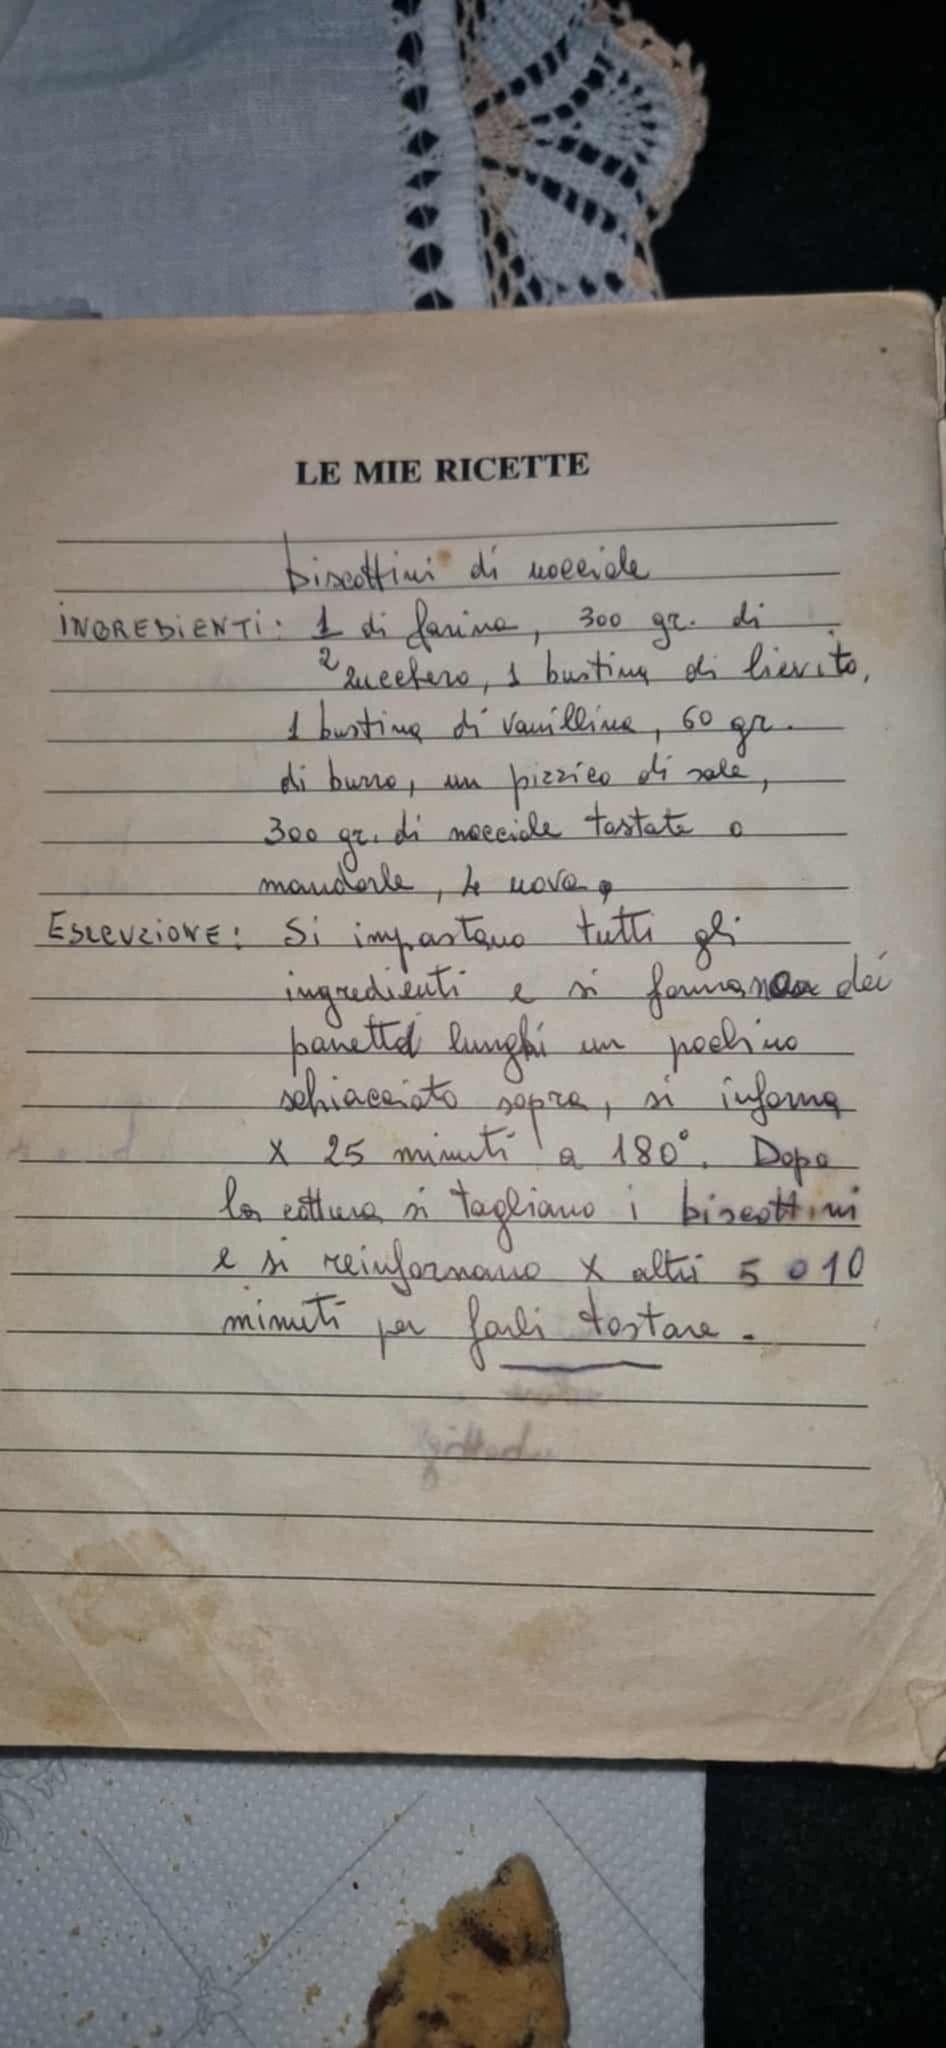 LE MIE RICETTE
biscottini di nocciole
INGREDIENTI: 1/2 di farina, 300 gr. di
zucchero, 1 bustina di lievito,
1 bustina di vanillina, 60 gr.
di burro, un pizzico di sale,
300 gr. di nocciole tostate o
mandorle, 4 uova.
ESECUZIONE: Si impastano tutti gli
ingredienti e si formano dei
panetti lunghi un pochino
schiacciato sopra, si inforna
x 25 minuti a 180°. Dopo
la cottura si tagliano i biscottini
e si reinfornano x altri 5 o 10
minuti per farli tostare.